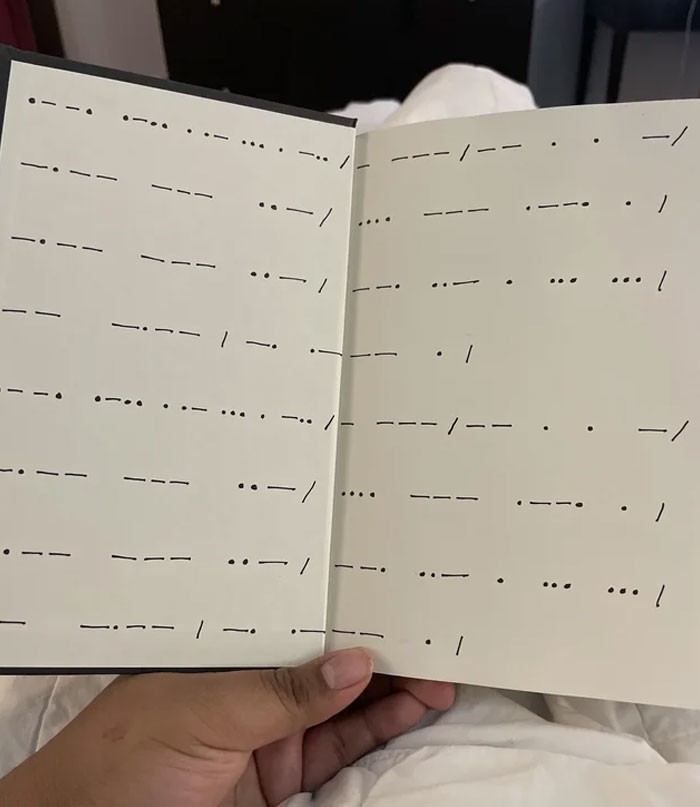 .--. .-.. . .- ... . -.. / - --- / -- . . - /
-.-- --- ..- / .... --- .--. . /
-.-- --- ..- / --. ..- . ... ... /
-- -.-- / -. .- -- . /
--. .-.. . .- ... . -.. / - --- / -- . . - /
-.-- --- ..- / .... --- .--. . /
.-- --- ..- / --. ..- . ... ... /
- -.-- / -. .- -- . /